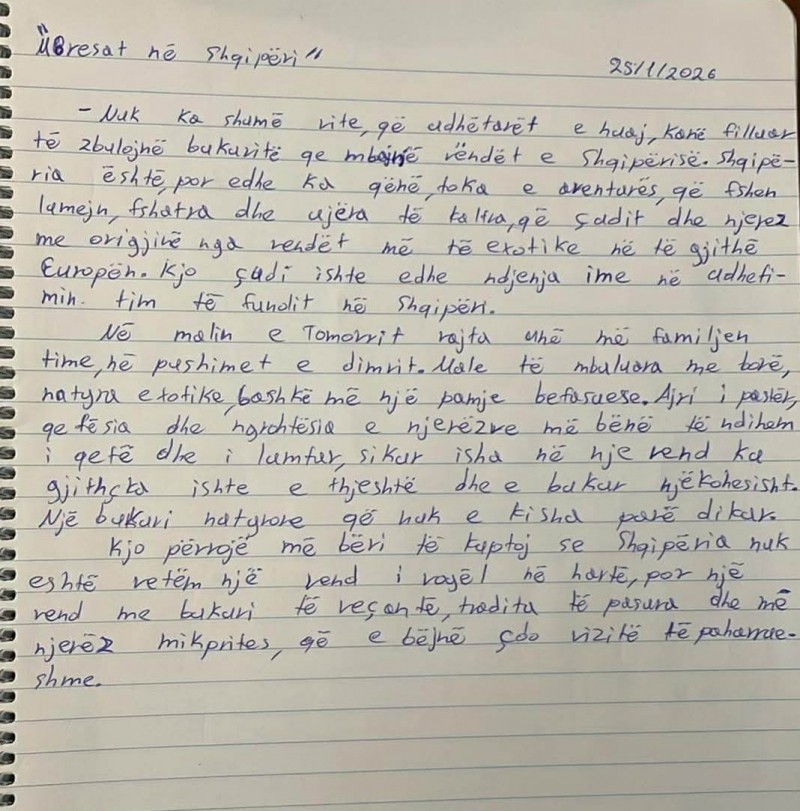 "Mbresat në Shqipëri"
25/1/2026
- Nuk ka shumë vite, që udhëtarët e huaj, kanë filluar
të zbulojnë bukuritë qe mbajnë vëndët e Shqipërisë. Shqipë-
ria është, por edhe ka qënë, toka e aventurës, që fsheh
lumejn, fshatra dhe ujëra të kaltra, që çudit dhe njerëz
me origjinë nga vendët më të exotike në të gjithë
Europën. Kjo çudi ishte edhe ndjenja ime në udhëti-
min tim të fundit në Shqipëri.
Në malin e Tomorrit vajta unë më familjen
time, në pushimet e dimrit. Male të mbuluara me borë,
natyra exotike, bashkë më një pamje befasuese. Ajri i pastër,
qetësia dhe ngrohtësia e njerëzve më bënë të ndihem
i qetë dhe i lumtur, sikur isha në nje vend ka
gjithçka ishte e thjeshtë dhe e bukur njëkohesisht.
Një bukuri natyrore që nuk e kisha parë dikur.
Kjo përrojë më bëri të kuptoj se Shqipëria nuk
eshtë vetëm një vend i vogël në hartë, por një
vend me bukuri të veçantë, tradita të pasura dhe më
njerëz mikprites, që e bëjnë çdo vizitë të paharrue-
shme.